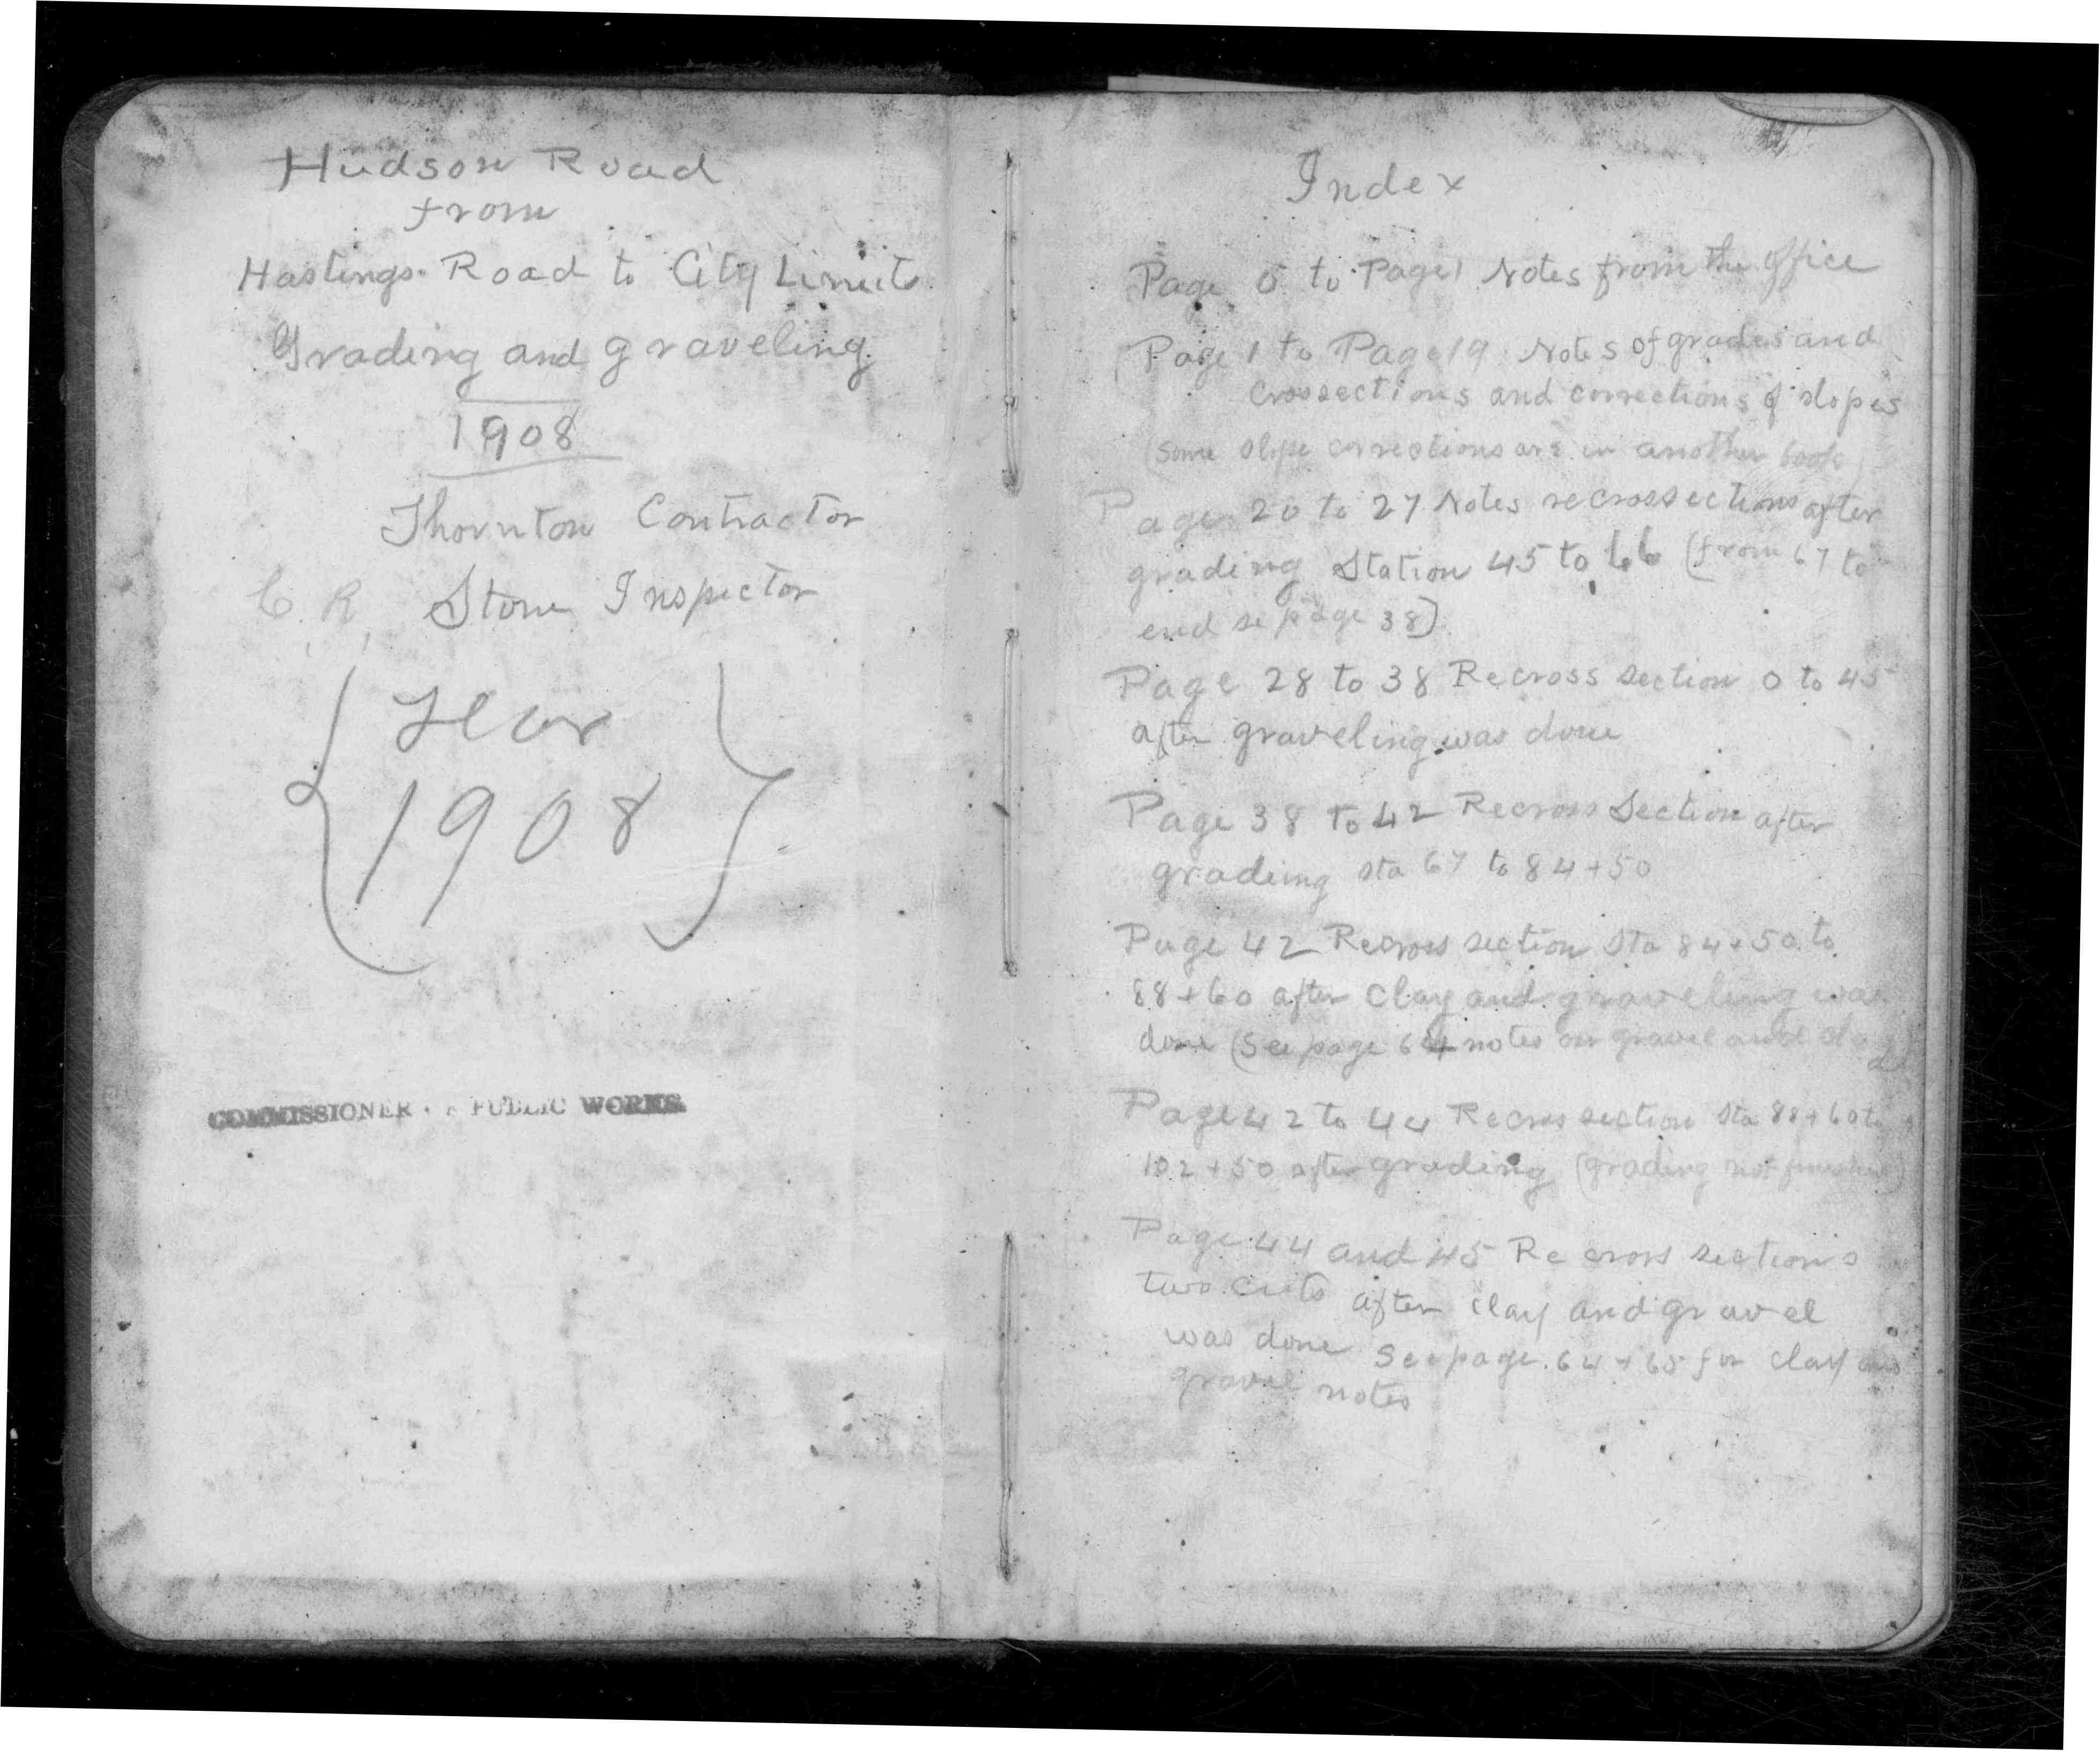 Hudson Road
from
Hastings Road to City Limits
Grading and graveling
1908
Thornton Contractor
C. R. Stone Inspector
1908
COMMISSIONER PUBLIC WORKS
Index
Page 0 to Page 1 Notes from the office
Page 1 to Page 19 Notes of grades and
crossections and corrections of slopes
(some slope corrections are in another book)
Page 20 to 27 Notes recrossections after
grading Station 45 to 66 (from 67 to
end se page 38)
Page 28 to 38 Recross section 0 to 45
after graveling was done
Page 38 to 42 Recross Section after
grading sta 67 to 84+50
Page 42 Recross section Sta 84+50 to
88+60 after Clay and graveling was
done (See page 64 notes on gravel and clay)
Page 42 to 44 Recross section Sta 88+60 to
102+50 after grading (grading not finished)
Page 44 and 45 Re cross sections
two cuts after clay and gravel
was done See page 64 + 65 for clay and
gravel notes